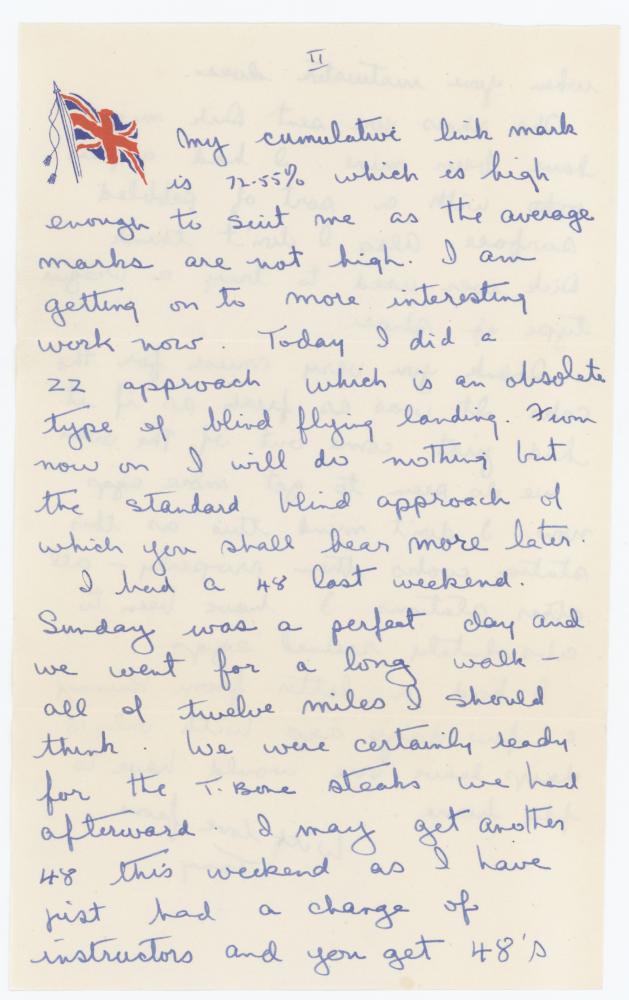 II
My cumulative link mark
is 72.55% which is high
enough to suit me as the average
marks are not high. I am
getting on to more interesting
work now. Today I did a
ZZ approach which is an obsolete
type of blind flying landing. From
now on I will do nothing but
the standard blind approach of
which you shall hear more later.
I had a 48 last weekend.
Sunday was a perfect day and
we went for a long walk –
all of twelve miles I should
think. We were certainly ready
for the T. Bone steaks we had
afterward. I may get another
48 this weekend as I have
just had a change of
instructors and you get 48's